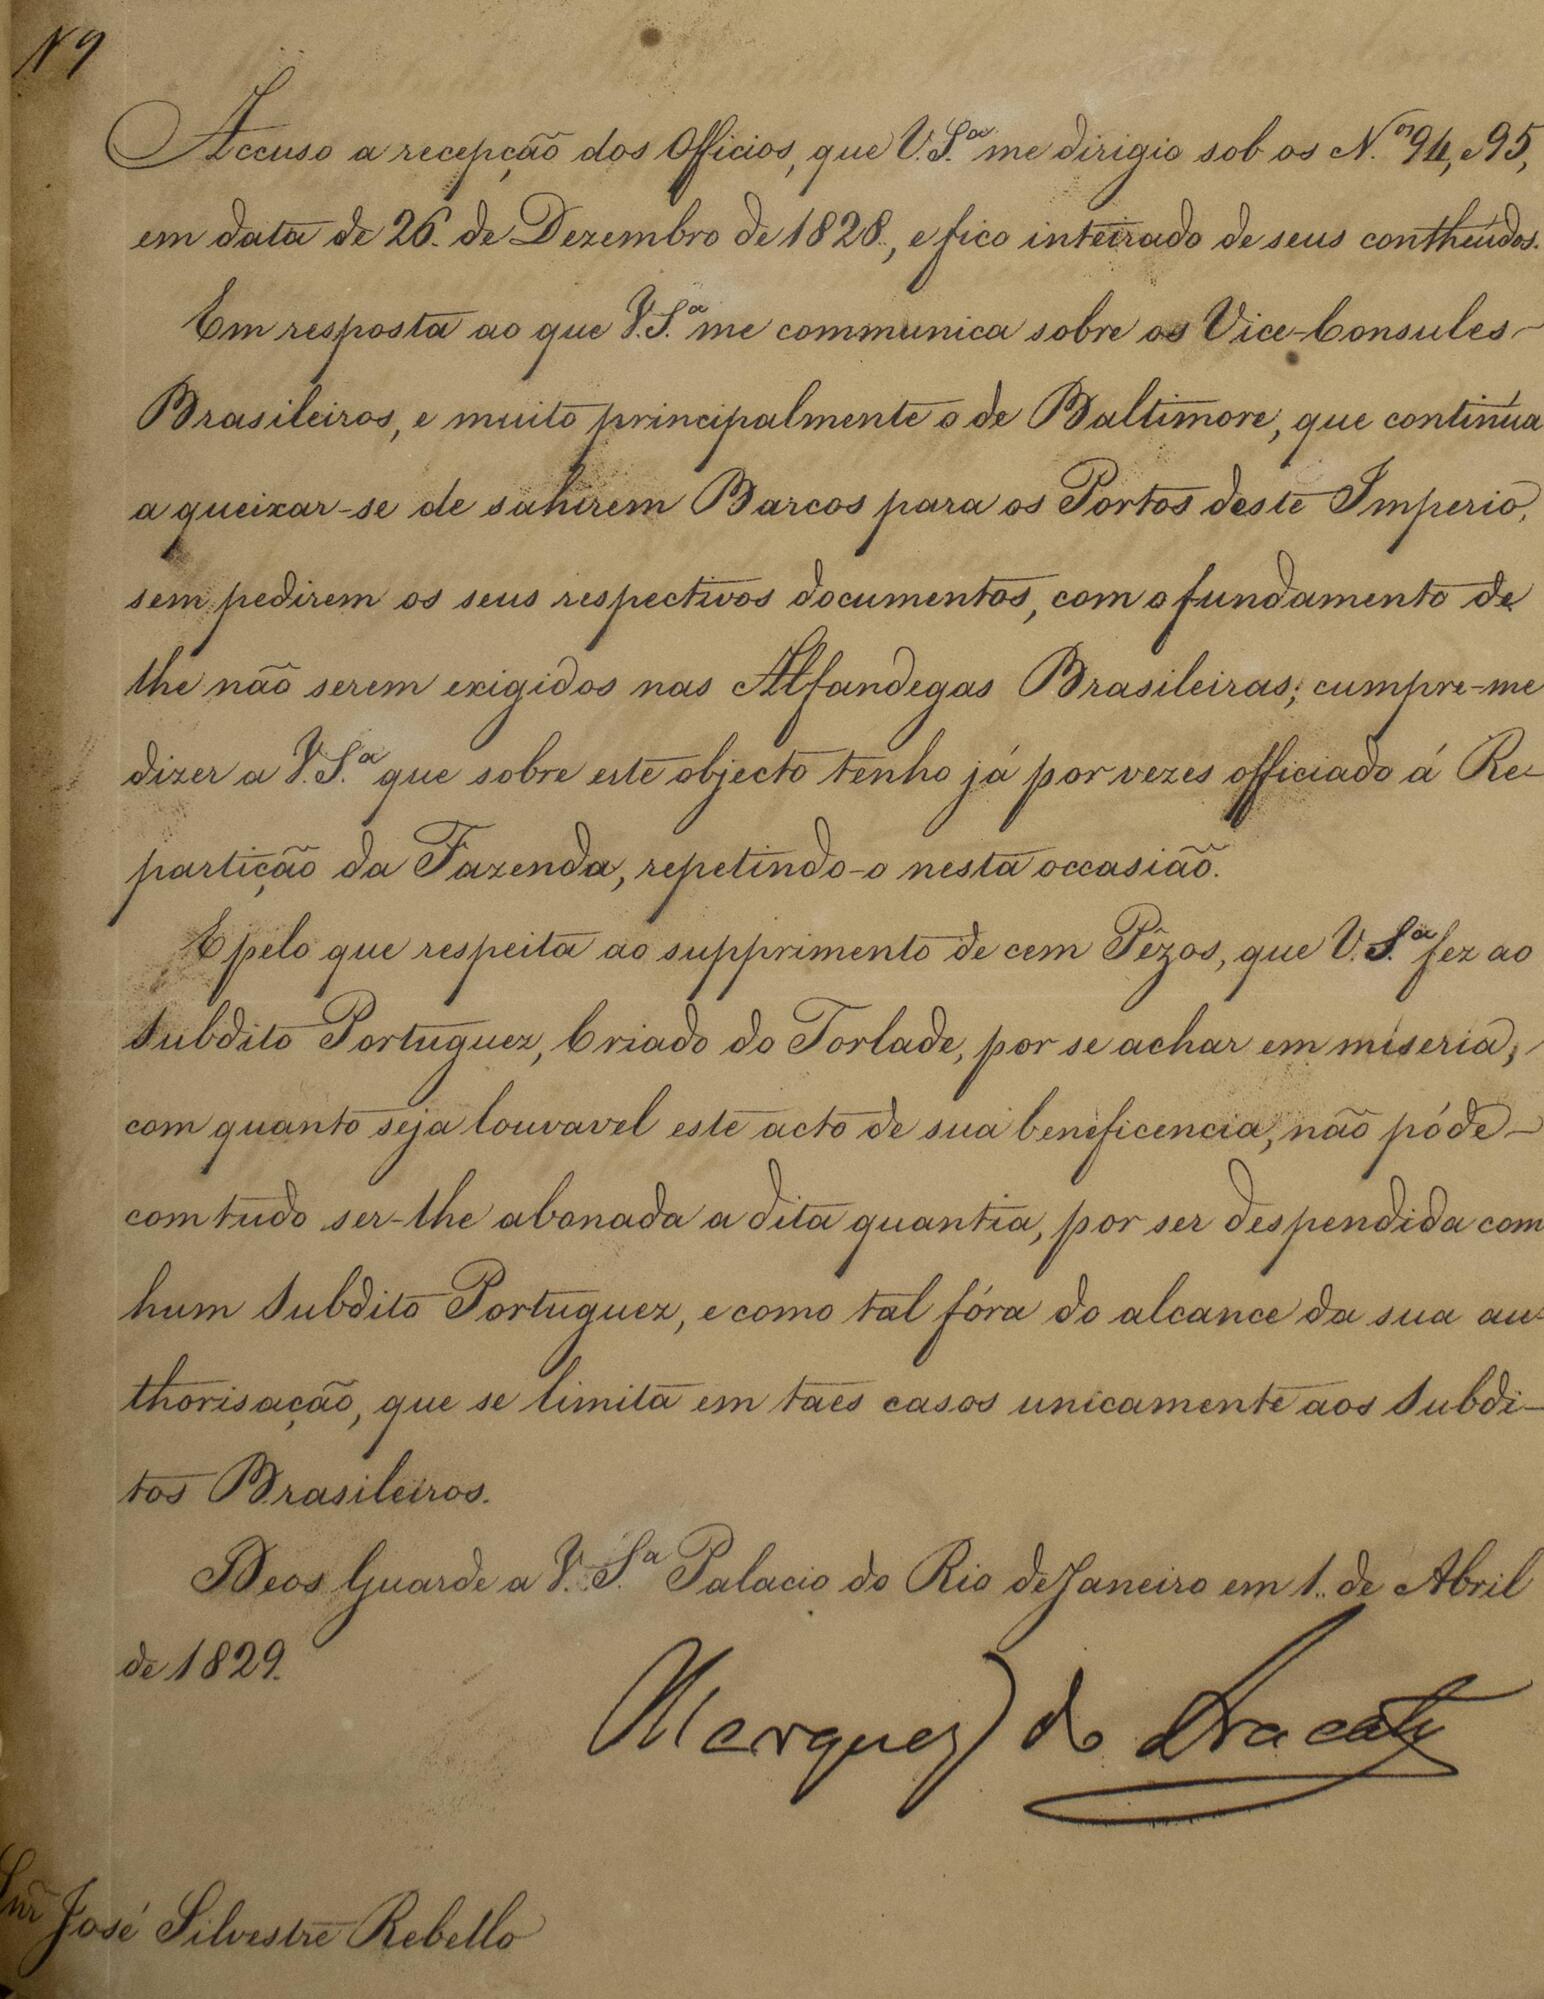 N 9
Accuso a recepção dos Officios, que V. S.ª me dirigio sob os N.os 94, e 95,
em data de 26. de Dezembro de 1828., e fico inteirado de seus contheúdos.
Em resposta ao que V. S.ª me communica sobre os Vice-Consules
Brasileiros, e muito principalmente o de Baltimore, que continúa
a queixar-se de sahirem Barcos para os Portos deste Imperio,
sem pedirem os seus respectivos documentos, com o fundamento de
lhe não serem exigidos nas Alfandegas Brasileiras; cumpre-me
dizer a V. S.ª que sobre este objecto tenho já por vezes officiado á Re-
partição da Fazenda, repetindo-o nesta occasião.
E pelo que respeita ao supprimento de cem Pêzos, que V. S.ª fez ao
Subdito Portuguez, Criado do Torlade, por se achar em miseria,
com quanto seja louvavel este acto de sua beneficencia, não póde
com tudo ser-lhe abonada a dita quantia, por ser despendida com
hum Subdito Portuguez, e como tal fóra do alcance da sua au-
thorisação, que se limita em taes casos unicamente aos Subdi-
tos Brasileiros.
Deos Guarde a V. S.ª Palacio do Rio de Janeiro em 1.. de Abril
de 1829.
Marquez do Aracaty
Snr José Silvestre Rebello